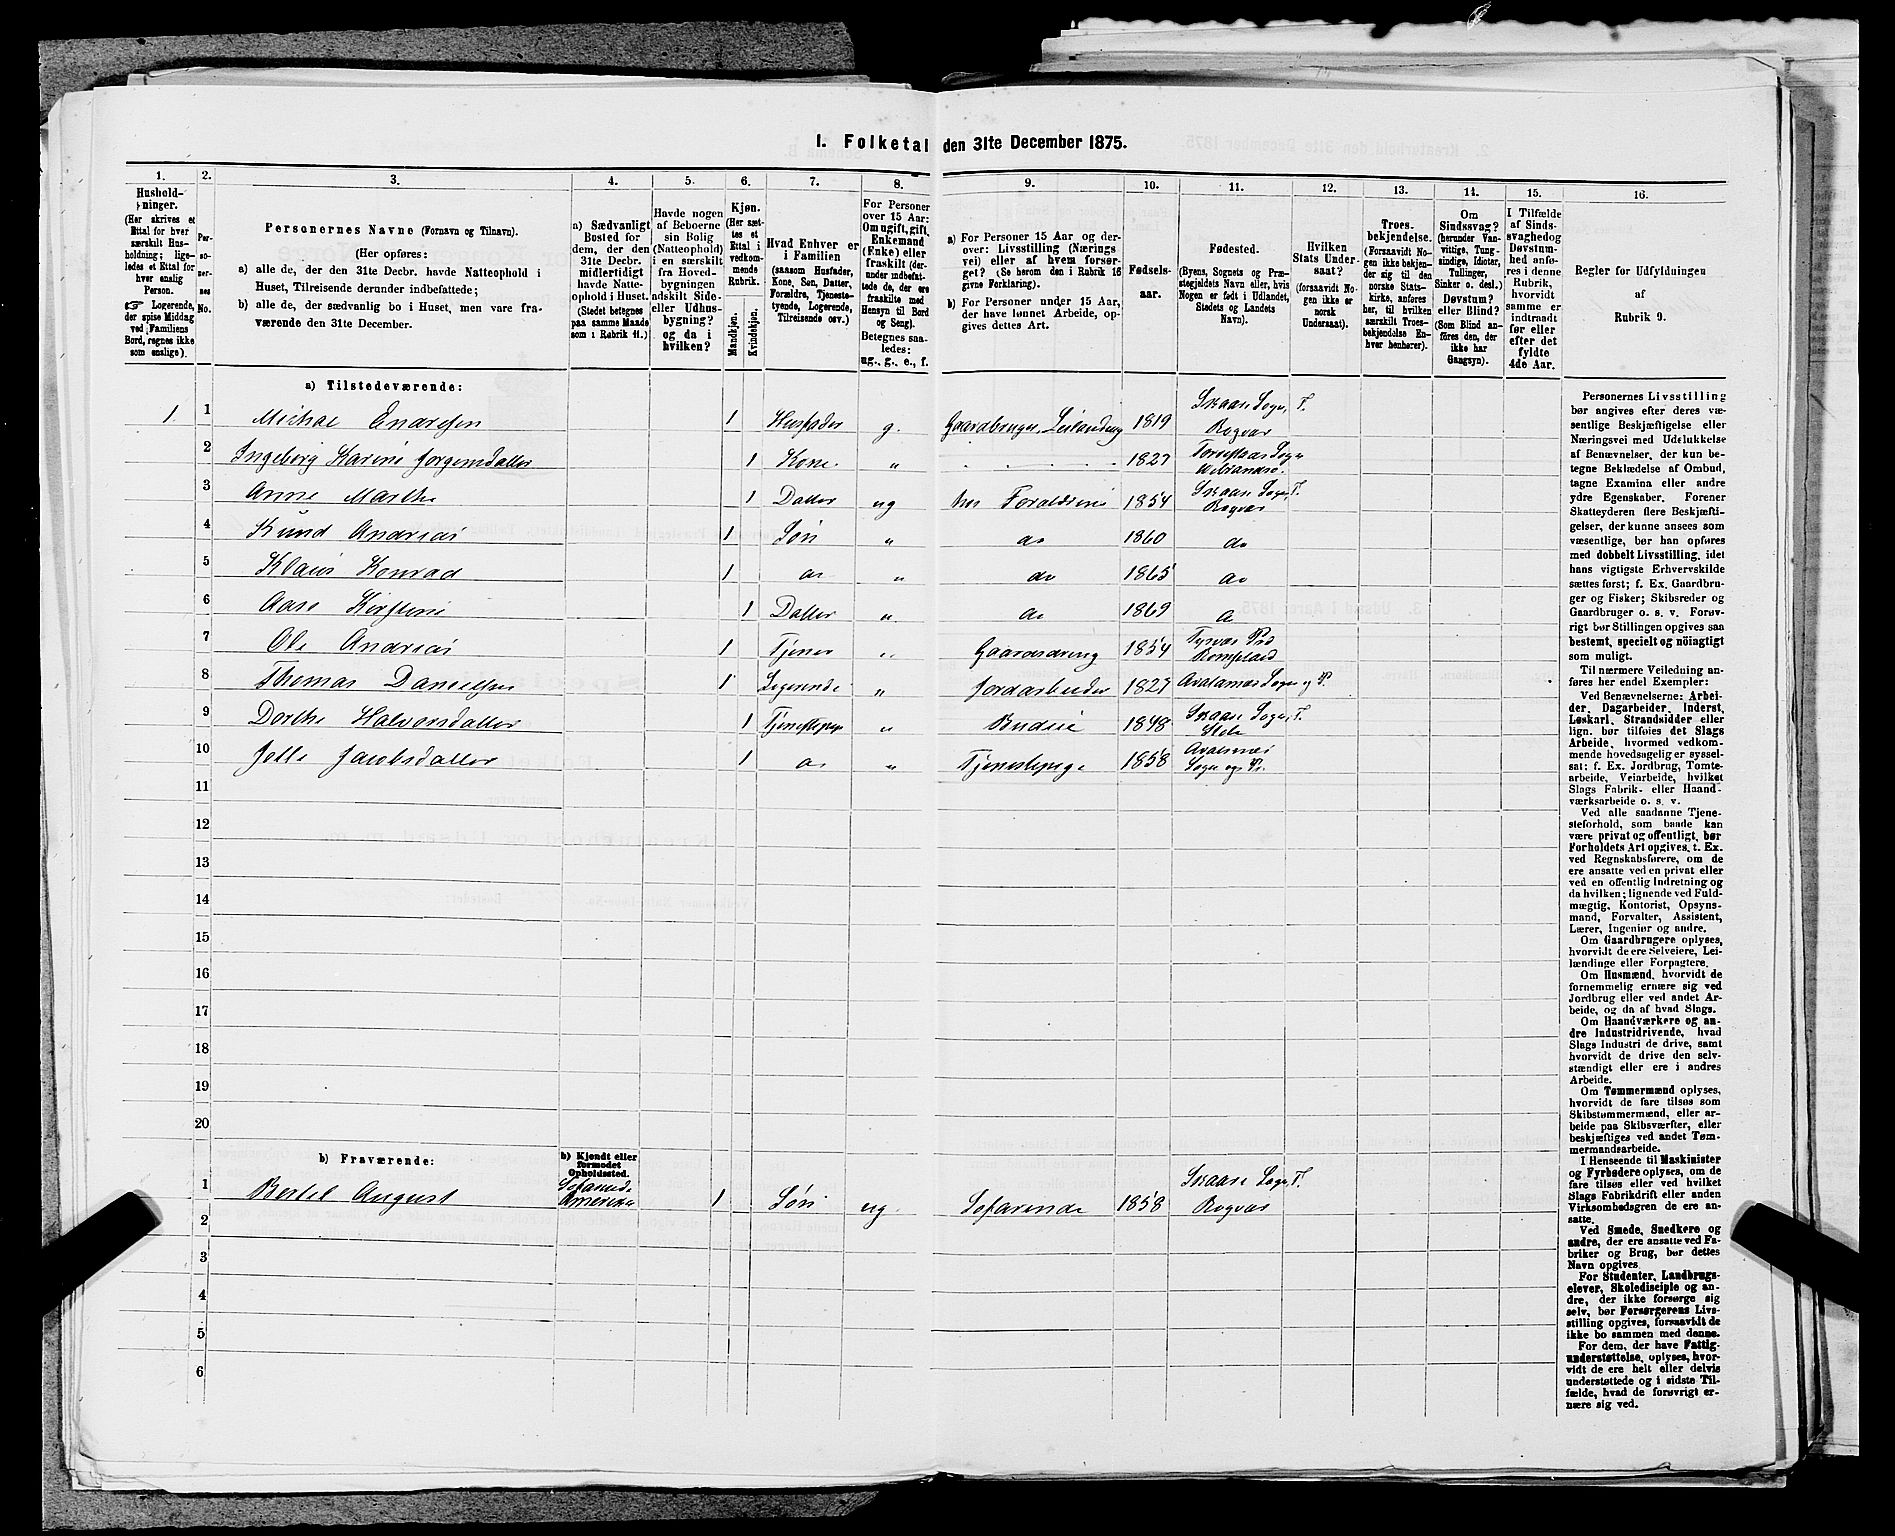 I. Folketal den 31te December 1875.
1. 2. 3. 4. 5. 6. 7. 8. 9. 10. 11. 12. 13. 14. 15. 16.
Hushold-
ninger.
(Her skrives et
Ettal for hver
særskilt Hus-
holdning; lige-
ledes et Ettal for
hver enslig
Person.
☞ Logerende,
der spise Middag
ved Familiens
Bord, regnes ikke
som enslige).
Per-
so-
ner-
nes
No.
Personernes Navne (Fornavn og Tilnavn).
(Her opføres:
a) alle de, der den 31te Decbr. havde Natteophold i
Huset, Tilreisende derunder indbefattede;
b) alle de, der sædvanlig bo i Huset, men vare fra-
værende den 31te December.
a) Sædvanligt
Bosted for
dem, der den
31te Decbr.
midlertidigt
havde Natte-
ophold i Huset.
(Stedet betegnes
paa samme Maade
som i Rubrik 11.)
Havde nogen
af Beboerne
sin Bolig
(Natteophold)
i en særskilt
fra Hoved-
bygningen
adskilt Side-
eller Udhus-
bygning?
og da i
hvilken?
Kjøn.
(Her sæt-
tes et
Ettal i
vedkom-
mende
Rubrik.
Mandkjøn.
Kvindekjøn.
Hvad Enhver er
i Familien
(saasom Husfader,
Kone, Søn, Datter,
Forældre, Tjeneste-
tyende, Logerende,
Tilreisende osv.)
For Personer
over 15 Aar:
Om ugift, gift,
Enkemand
(Enke) eller
fraskilt (der-
under indbefat-
tede de, der ere
fraskilte med
Hensyn til Bord
og Seng).
Betegnes saa-
ledes:
ug., g., e., f.
a) For Personer 15 Aar og der-
over: Livsstilling (Nærings
vei) eller af hvem forsør-
get? (Se herom den i Rubrik 16
givne Forklaring).
b) For Personer under 15 Aar,
der have lønnet Arbeide, op-
gives dettes Art.
Fødsels-
aar.
Fødested.
(Byens, Sognets og Præ-
stegjeldets Navn eller, hvis
Nogen er født i Udlandet,
Stedets og Landets
Navn).
Hvilken
Stats Under-
saat?
(forsaavidt No-
gen ikke er
norsk
Undersaat).
Troes-
bekjendelse.
(Forsaavidt No-
gen ikke bekjen-
der sig til den
norske Stats-
kirke, anføres
her, til hvilken
særskilt Troes-
bekjendelse En-
hver henhører).
Om
Sindssvag?
(herunder Van-
vittige, Tung-
sindige, Idioter,
Tullinger,
Sinker o. desl.)
Døvstum?
eller Blind?
(Som Blind an-
føres den, der
ikke har
Gangsyn).
I Tilfælde
af Sinds-
svaghed og
Døvstum-
hed anfø-
res i denne
Rubrik,
hvorvidt
samme er
indtraadt
før eller
efter det
fyldte
4de Aar.
Regler for Udfyldningen
af
Rubrik 9.
a) Tilstedeværende:
1 1 Michal Endresen 1 Husfader g. Gaardbruger, Leilænding 1819 Skaare Sogn, T. Rogvær
2 Ingeborg Karine Jørgensdatter 1 Kone " 1827 Torvestad Sogn
3 Anne Marthe 1 Datter ug hos Foraldrene 1854 Skaare Sogn, T. Rogvær
4 Knud Andreas 1 Søn " do 1860 do
5 Klaus Konrad 1 do " do 1865 do
6 Aase Kirstine 1 Datter " do 1869 do
7 Ole Andreas 1 Tjener " Gaardsdreng 1854 Tysvær Pd
8 Thomas Danielsen 1 Logerende " Jordarbeider 1827 Avaldsnes Sogn og P.
9 Dorthe Halvorsdatter 1 Tjenestepige " Budeie 1848 Skaare Sogn, T.
10 Jacobsdatter 1 do " Tjenestepige 1858 Avalsnes Sogn og Pr.
11
12
13
14
15
16
17
18
19
20
b) Fraværende:
b) Kjendt eller
formodet
Opholdssted.
1 Bertel August Amerika 1 Søn ug. Sofarende 1858 Skaare Sogn, T. Rogvær
2
3
4
5
6
Personernes Livsstilling
bør angives efter deres væ-
sentlige Beskjæftigelse eller
Næringsvei med Udelukkelse
af Benævnelser, der kun be-
tegne Beklædelse af Ombud,
tagne Examina eller andre
ydre Egenskaber. Forener
Skatteyderen flere Beskjæfti-
gelser, der kunne ansees som
væsentlige, bør han opføres
med dobbelt Livsstilling, idet
hans vigtigste Erhvervskilde
sættes først; f. Ex. Gaardbru-
ger og Fisker; Skibsreder og
Gaardbruger o. s. v. Forøv-
rigt bør Stillingen opgives saa
bestemt, specielt og nöiagtigt
som muligt.
Til nærmere Veiledning an-
føres her endel Exempler:
Ved Benævnelserne: Arbei-
der, Dagarbeider, Inderst,
Løskarl, Strandsidder eller
lign. bør tilføies det Slags
Arbeide, hvormed vedkom-
mende hovedsagelig er syssel-
sat: f. Ex. Jordbrug, Tomte-
arbeide, Veiarbeide, hvilket
Slags Fabrik- eller Haand-
værksarbeide o. s. v.
Ved alle saadanne Tjene-
steforhold, som baade kan
være privat og offentligt, bør
Forholdets Art opgives, t. Ex.
ved Regnskabsførere, om de
ere ansatte ved en privat eller
ved en offentlig Indretning og
da hvilken; lignende ved Fuld-
mægtig, Kontorist, Opsyns-
mand, Forvalter, Assistent,
Lærer, Ingeniør og andre.
Om Gaardbrugere oplyses,
hvorvidt de ere Selveiere, Lei-
lændinge eller Forpagtere.
Om Husmænd, hvorvidt de
fornemmelig ernære sig ved
Jordbrug eller ved andet Ar-
beide, og da af hvad Slags.
Om Haandværkere og an-
dre Industridrivende, hvad
Slags Industri de drive, samt
hvorvidt de drive den selv-
stændigt eller ere i andres
Arbeide.
Om Tømmermænd oplyses,
hvorvidt de fare tilsøs som
Skibstømmermænd, eller ar-
beide paa Skibsværfter, eller
beskjæftiges ved andet Tøm-
mermandsarbeide.
I Henseende til Maskinister
og Fyrbødere oplyses, om de
fare tilsøs eller ved hvilket
Slags Fabrikdrift eller anden
Virksomhedsgren de ere an-
satte.
Ved Smede, Snedkere og
andre, der ere ansatte ved Fa-
briker og Brug, bør dettes
Navn opgives.
For Studenter, Landbrugs-
elever, Skoledisciple og an-
dre, der ikke forsørge sig
selv, bør Forsørgerens Livs-
stilling opgives, forsaavidt de
ikke bo sammen med denne.
For dem, der have Fattig-
understøttelse, oplyses, hvor-
vidt de ere helt eller delvis
understøttede og i sidste Til-
fælde, hvad de forøvrigt er-
nære sig ved.